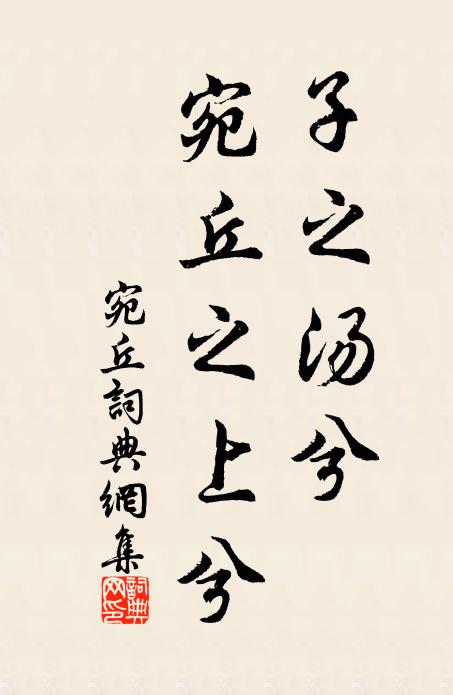 子之汤兮
宛丘之上兮
宛丘詞典網集
詞典网印